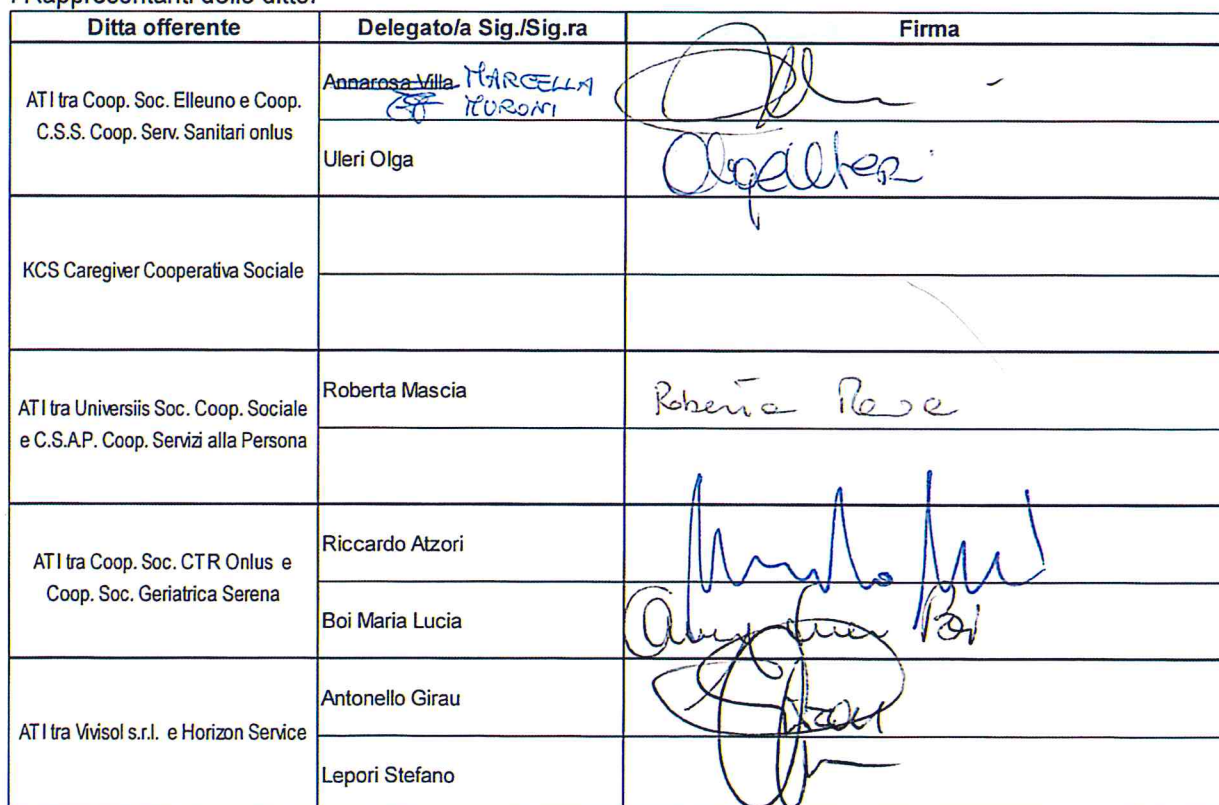 I Rappresentanti delle ditte:
Ditta offerente Delegato/a Sig./Sig.ra Firma
ATI tra Coop. Soc. Elleuno e Coop.
C.S.S. Coop. Serv. Sanitari onlus
Annarosa Villa MARCELLA
MURONI
Uleri Olga
Olga Uleri
KCS Caregiver Cooperativa Sociale
ATI tra Universiis Soc. Coop. Sociale
e C.S.A.P. Coop. Servizi alla Persona
Roberta Mascia
Roberta
ATI tra Coop. Soc. CTR Onlus e
Coop. Soc. Geriatrica Serena
Riccardo Atzori
Boi Maria Lucia
Boi
ATI tra Vivisol s.r.l. e Horizon Service
Antonello Girau
Lepori Stefano